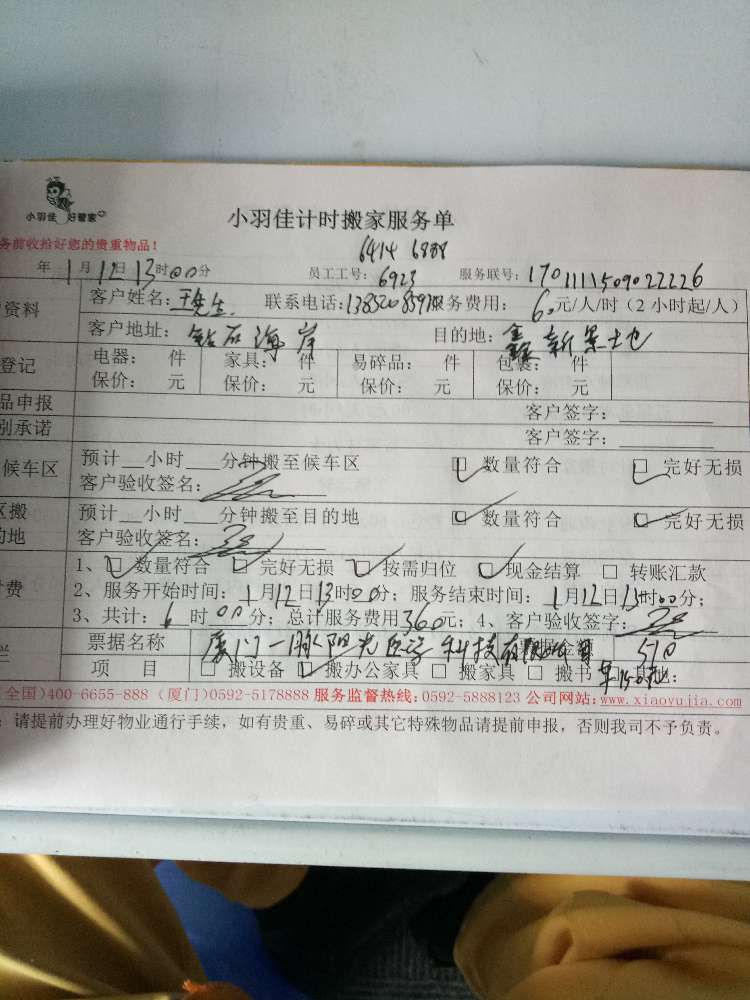 小羽佳 好管家
小羽佳计时搬家服务单
务前收拾好您的贵重物品！
6414 6888
年1月12日13时00分 员工工号：6923 服务联号：1701111509022226
资料 客户姓名：王先生 联系电话： 服务费用：60元/人/时（2小时起/人）
客户地址：钻石海岸 目的地：鑫新景地
登记 电器： 件 家具： 件 易碎品： 件 包裹： 件
保价： 元 保价： 元 保价： 元 保价： 元
品申报 客户签字：
别承诺 客户签字：
候车区 预计__小时___分钟搬至候车区 □ 数量符合 □ 完好无损
客户验收签名：
区搬 预计__小时___分钟搬至目的地 □ 数量符合 □ 完好无损
的地 客户验收签名：
1、□ 数量符合 □ 完好无损 □ 按需归位 □ 现金结算 □ 转账汇款
付费 2、服务开始时间：1月12日13时00分；服务结束时间：1月12日15时00分；
3、共计：6时00分；总计服务费用360元；4、客户验收签字：
票据名称 厦门一脉阳光医学科技有限公司 票据金额 510
项 目 □ 搬设备 □ 搬办公家具 □ 搬家具 □ 搬书 □ 其他：
车150
（全国)400-6655-888 (厦门)0592-5178888 服务监督热线:0592-5888123 公司网站:www.xiaoyujia.com
：请提前办理好物业通行手续，如有贵重、易碎或其它特殊物品请提前申报，否则我司不予负责。